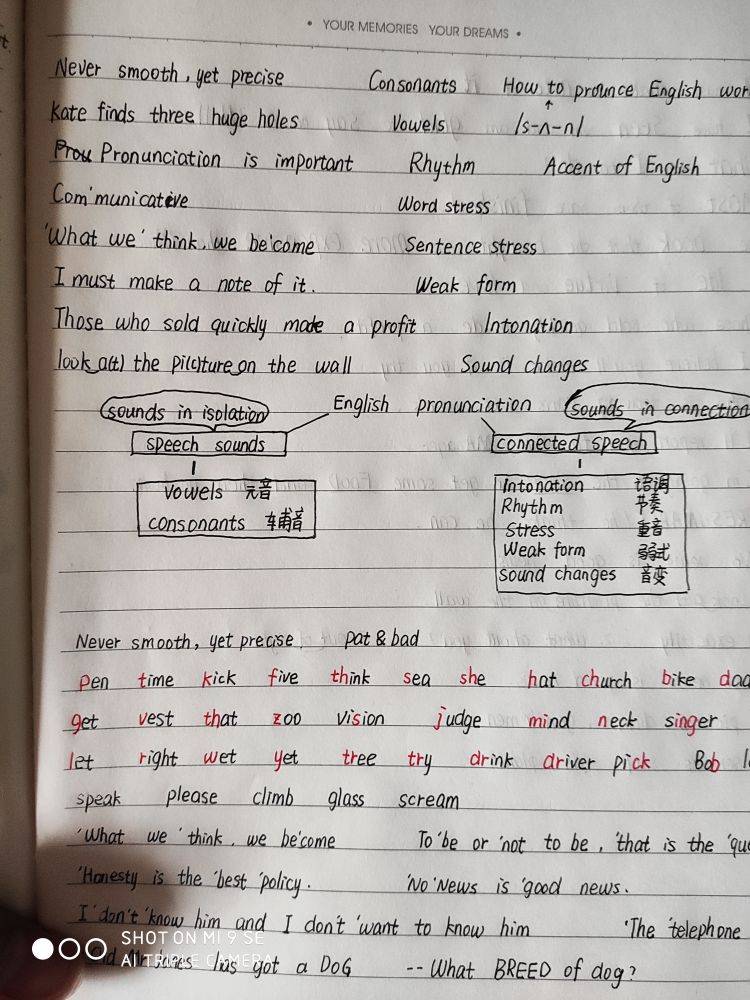 • YOUR MEMORIES YOUR DREAMS •
Never smooth, yet precise Consonants How to prounce English
Kate finds three huge holes Vowels /s-ʌ-n/
Pronunciation is important Rhythm Accent of English
Com'municative Word stress
'What we 'think, we be'come Sentence stress
I must make a note of it. Weak form
Those who sold quickly made a profit Intonation
look a(t) the pi(c)ture on the wall Sound changes
sounds in isolation English pronunciation sounds in connection
speech sounds connected speech
vowels 元音 Intonation 语调
consonants 辅音 Rhythm 节奏
Stress 重音
Weak form 弱式
Sound changes 音变
Never smooth, yet precise. pat & bad
pen time kick five think sea she hat church bike
get vest that zoo vision judge mind neck singer
let right wet yet tree try drink driver pick Bob
speak please climb glass scream
'What we 'think, we be'come To 'be or 'not to be, 'that is the
'Honesty is the 'best 'policy. 'No 'News is 'good news.
I 'don't 'know him and I don't 'want to know him 'The 'telephone
has got a DOG -- What BREED of dog?
SHOT ON MI 9 SE
AI TRIPLE CAMERA